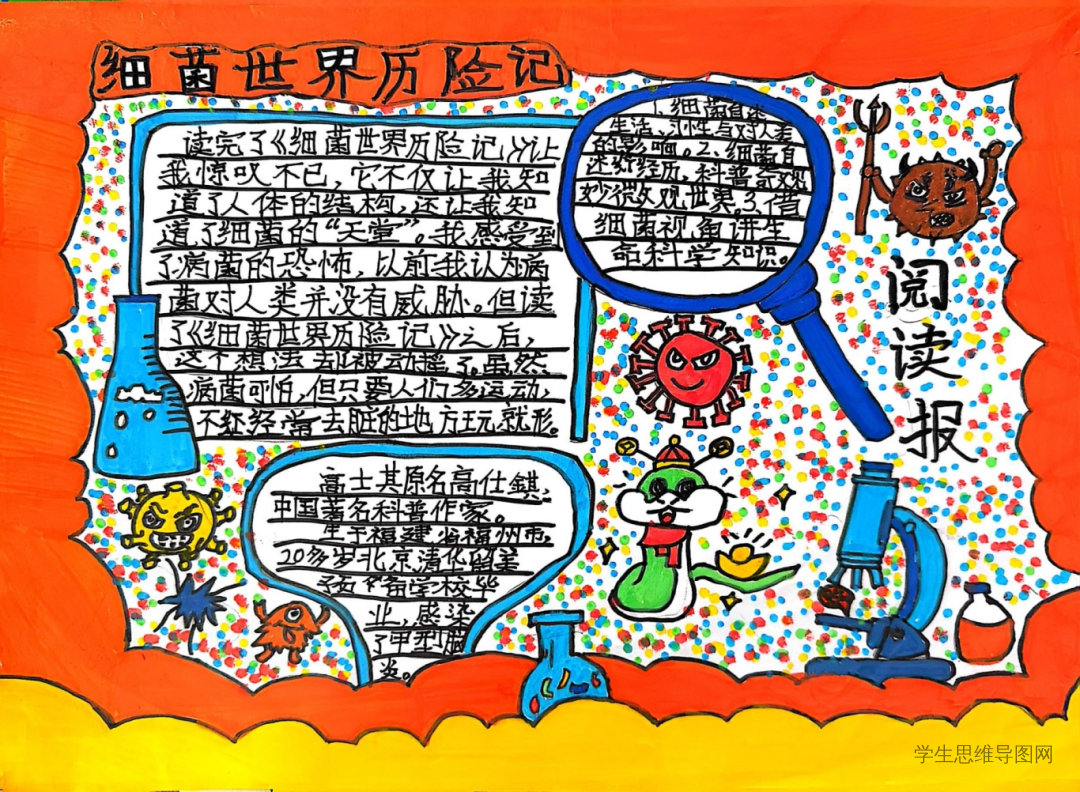 细菌世界历险记
读完了《细菌世界历险记》让
我惊叹不已，它不仅让我知
道了人体的结构，还让我知
道了细菌的“天堂”。我感受到
了病菌的恐怖，以前我认为病
菌对人类并没有威胁。但读
了《细菌世界历险记》之后，
这个想法却被动摇了。虽然
病菌可怕，但只要人们多运动，
不经经常去脏的地方玩就形。
1、细菌自述
生活、习性与对人类
的影响。2、细菌自
述经历，科普奇观
妙微观世界。3、借
细菌视角讲生
命科学知识。
阅读报
高士其原名高仕錤。
中国著名科普作家。
生于福建省福州市。
20多岁北京清华留美
预备学校毕
业，感染
了甲型脑
炎。
学生思维导图网